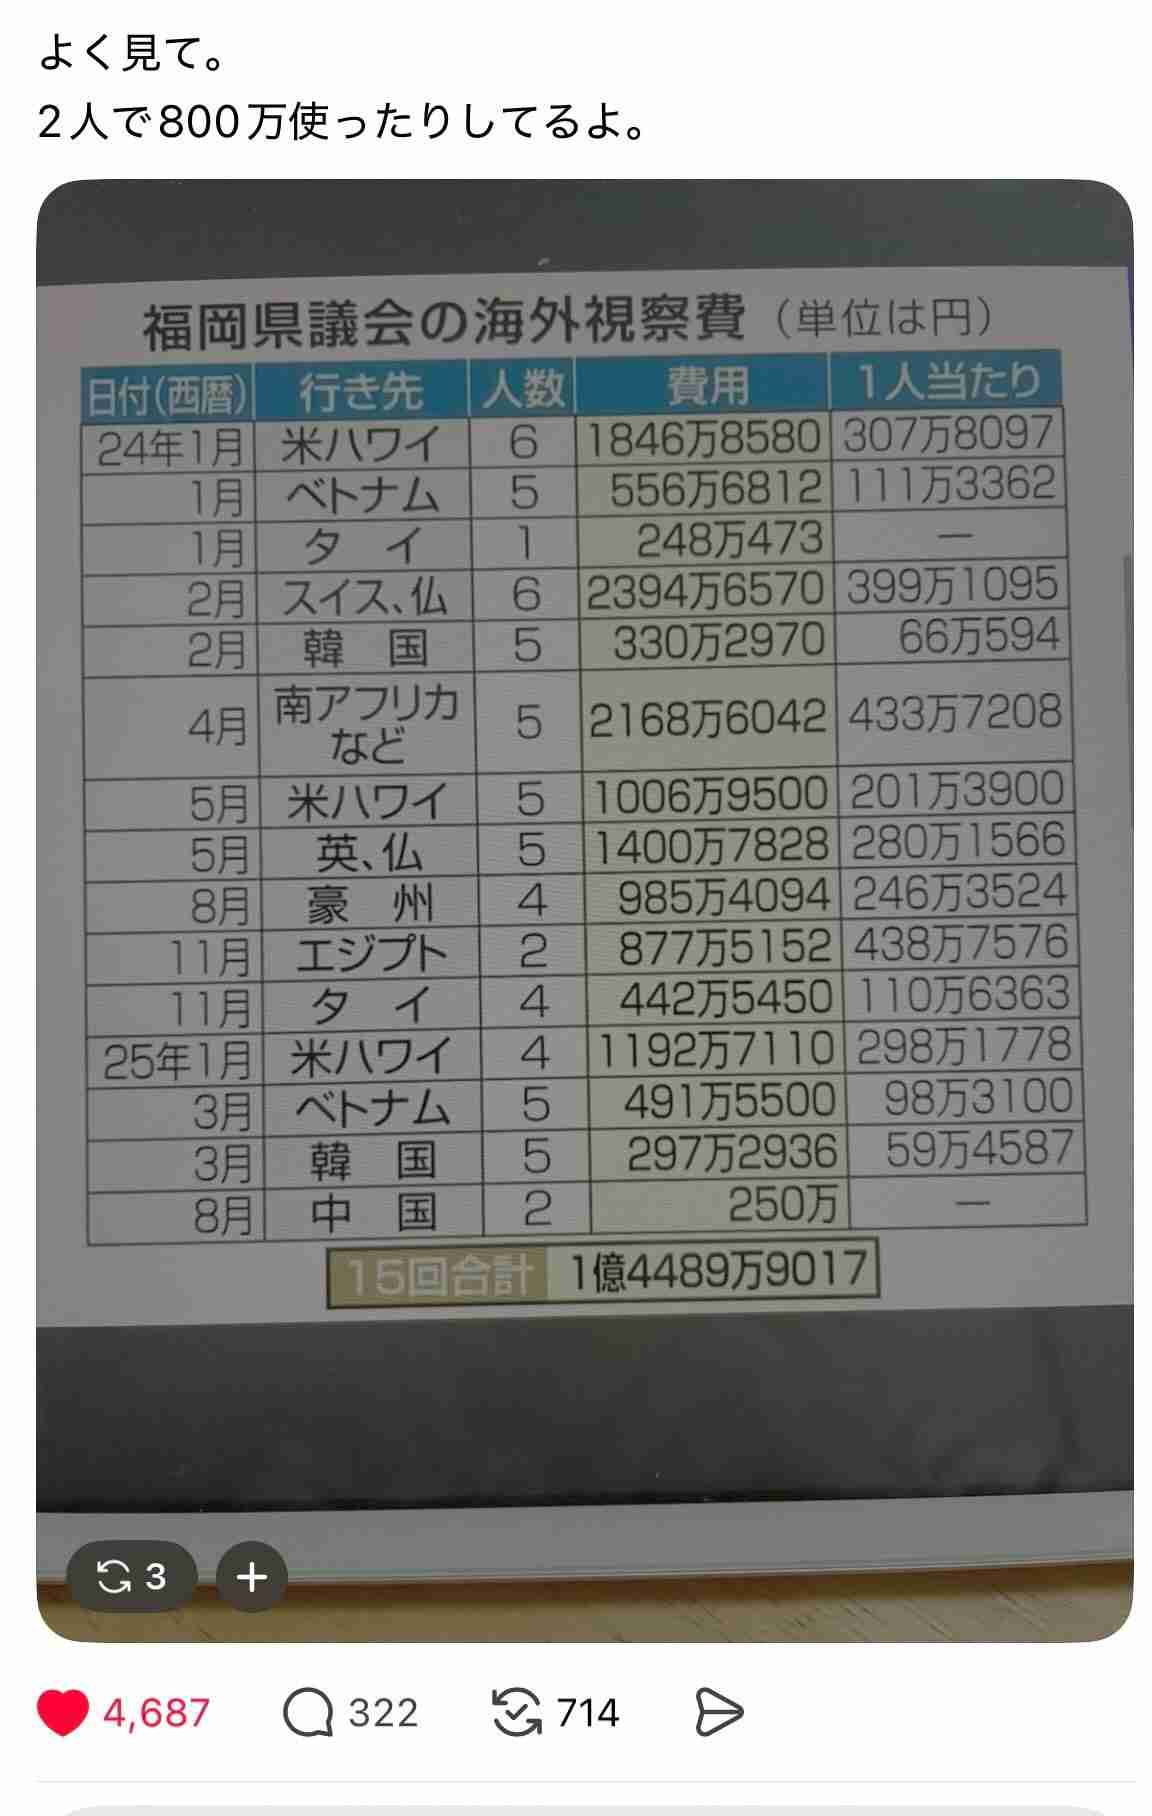 よく見て。
2人で800万使ったりしてるよ。
福岡県議会の海外視察費（単位は円）
日付(西暦) 行き先 人数 費用 1人当たり
24年1月 米ハワイ 6 1846万8580 307万8097
1月 ベトナム 5 556万6812 111万3362
1月 タイ 1 248万473 —
2月 スイス、仏 6 2394万6570 399万1095
2月 韓国 5 330万2970 66万594
4月 南アフリカなど 5 2168万6042 433万7208
5月 米ハワイ 5 1006万9500 201万3900
5月 英、仏 5 1400万7828 280万1566
8月 豪州 4 985万4094 246万3524
11月 エジプト 2 877万5152 438万7576
11月 タイ 4 442万5450 110万6363
25年1月 米ハワイ 4 1192万7110 298万1778
3月 ベトナム 5 491万5500 98万3100
3月 韓国 5 297万2936 59万4587
8月 中国 2 250万 —
15回合計 1億4489万9017
3
4,687 322 714